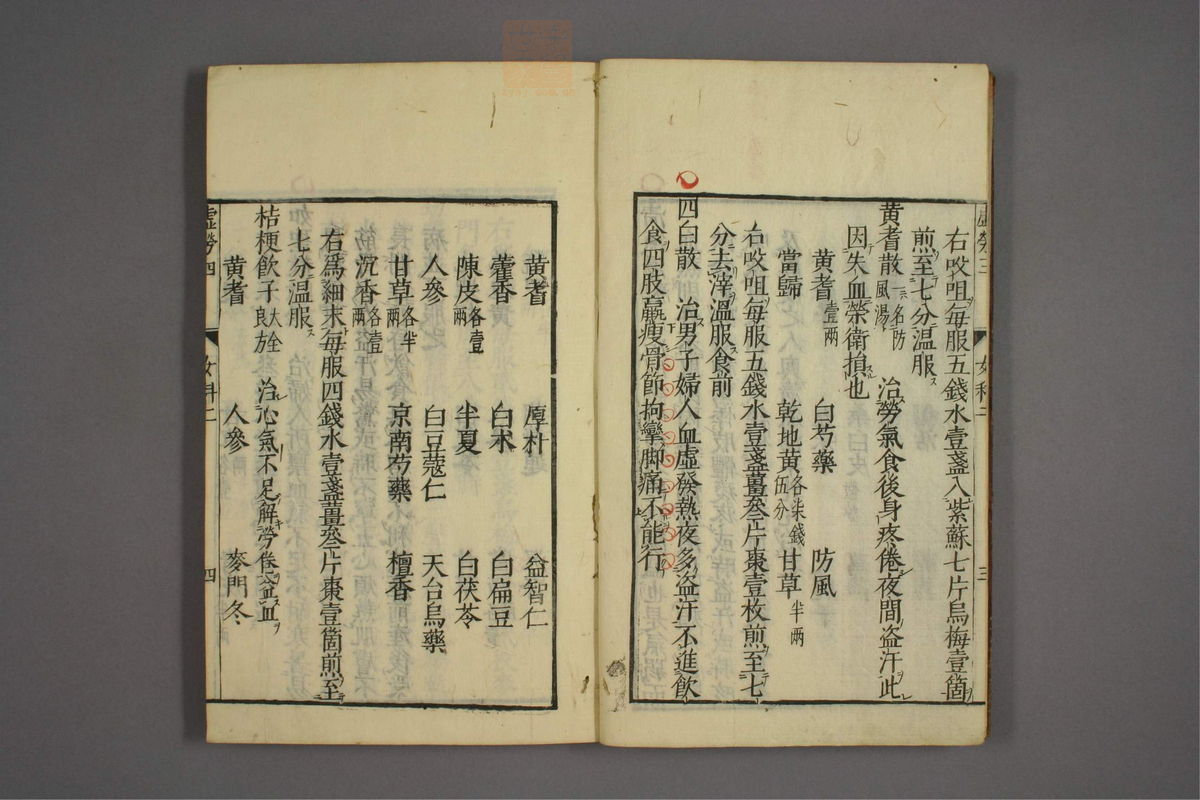 右㕮咀每服五錢水壹盞入紫蘇七片烏梅壹箇
煎至七分温服
黄耆散一名防風湯 治勞氣食後身疼倦夜間盗汗此
因失血榮衛損也
黄耆壹兩 白芍藥 防風
當歸 乾地黄各柒錢伍分 甘草半兩
右㕮咀每服五錢水壹盞薑叄片棗壹枚煎至七
分去滓溫服食前
四白散 治男子婦人血虛發熱夜多盗汗不進飲
食四肢羸瘦骨節拘攣脚痛不能行
虛勞三 女科二 三
黄耆 厚朴 益智仁
藿香 白朮 白扁豆
陳皮各壹兩 半夏 白茯苓
人參 白豆蔻仁 天台烏藥
甘草各半兩 京南芍藥 檀香
沉香各壹兩
右爲細末每服四錢水壹盞薑叄片棗壹箇煎至
七分温服
桔梗飲子大全良方 治心氣不足解勞倦益血
黄耆 人參 麥門冬
虛勞四 女科二 四